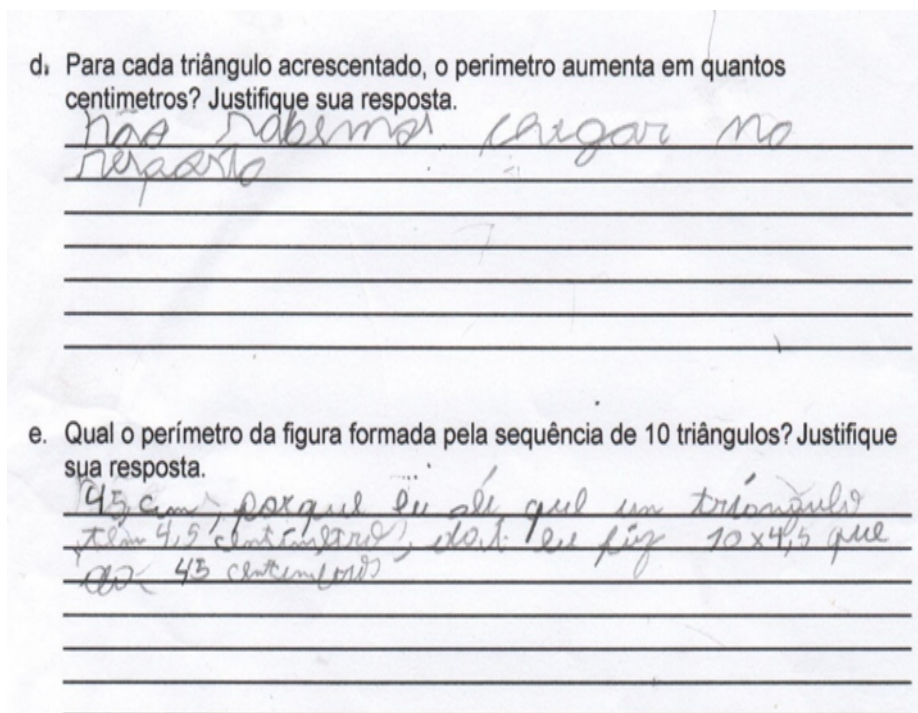 d. Para cada triângulo acrescentado, o perimetro aumenta em quantos
centimetros? Justifique sua resposta.
não sabemos chegar na
resposta
e. Qual o perímetro da figura formada pela sequência de 10 triângulos? Justifique
sua resposta.
45 cm, porque eu sei que um triângulo
tem 4,5 centímetros, daí eu fiz 10x4,5 que
da 45 centimetros